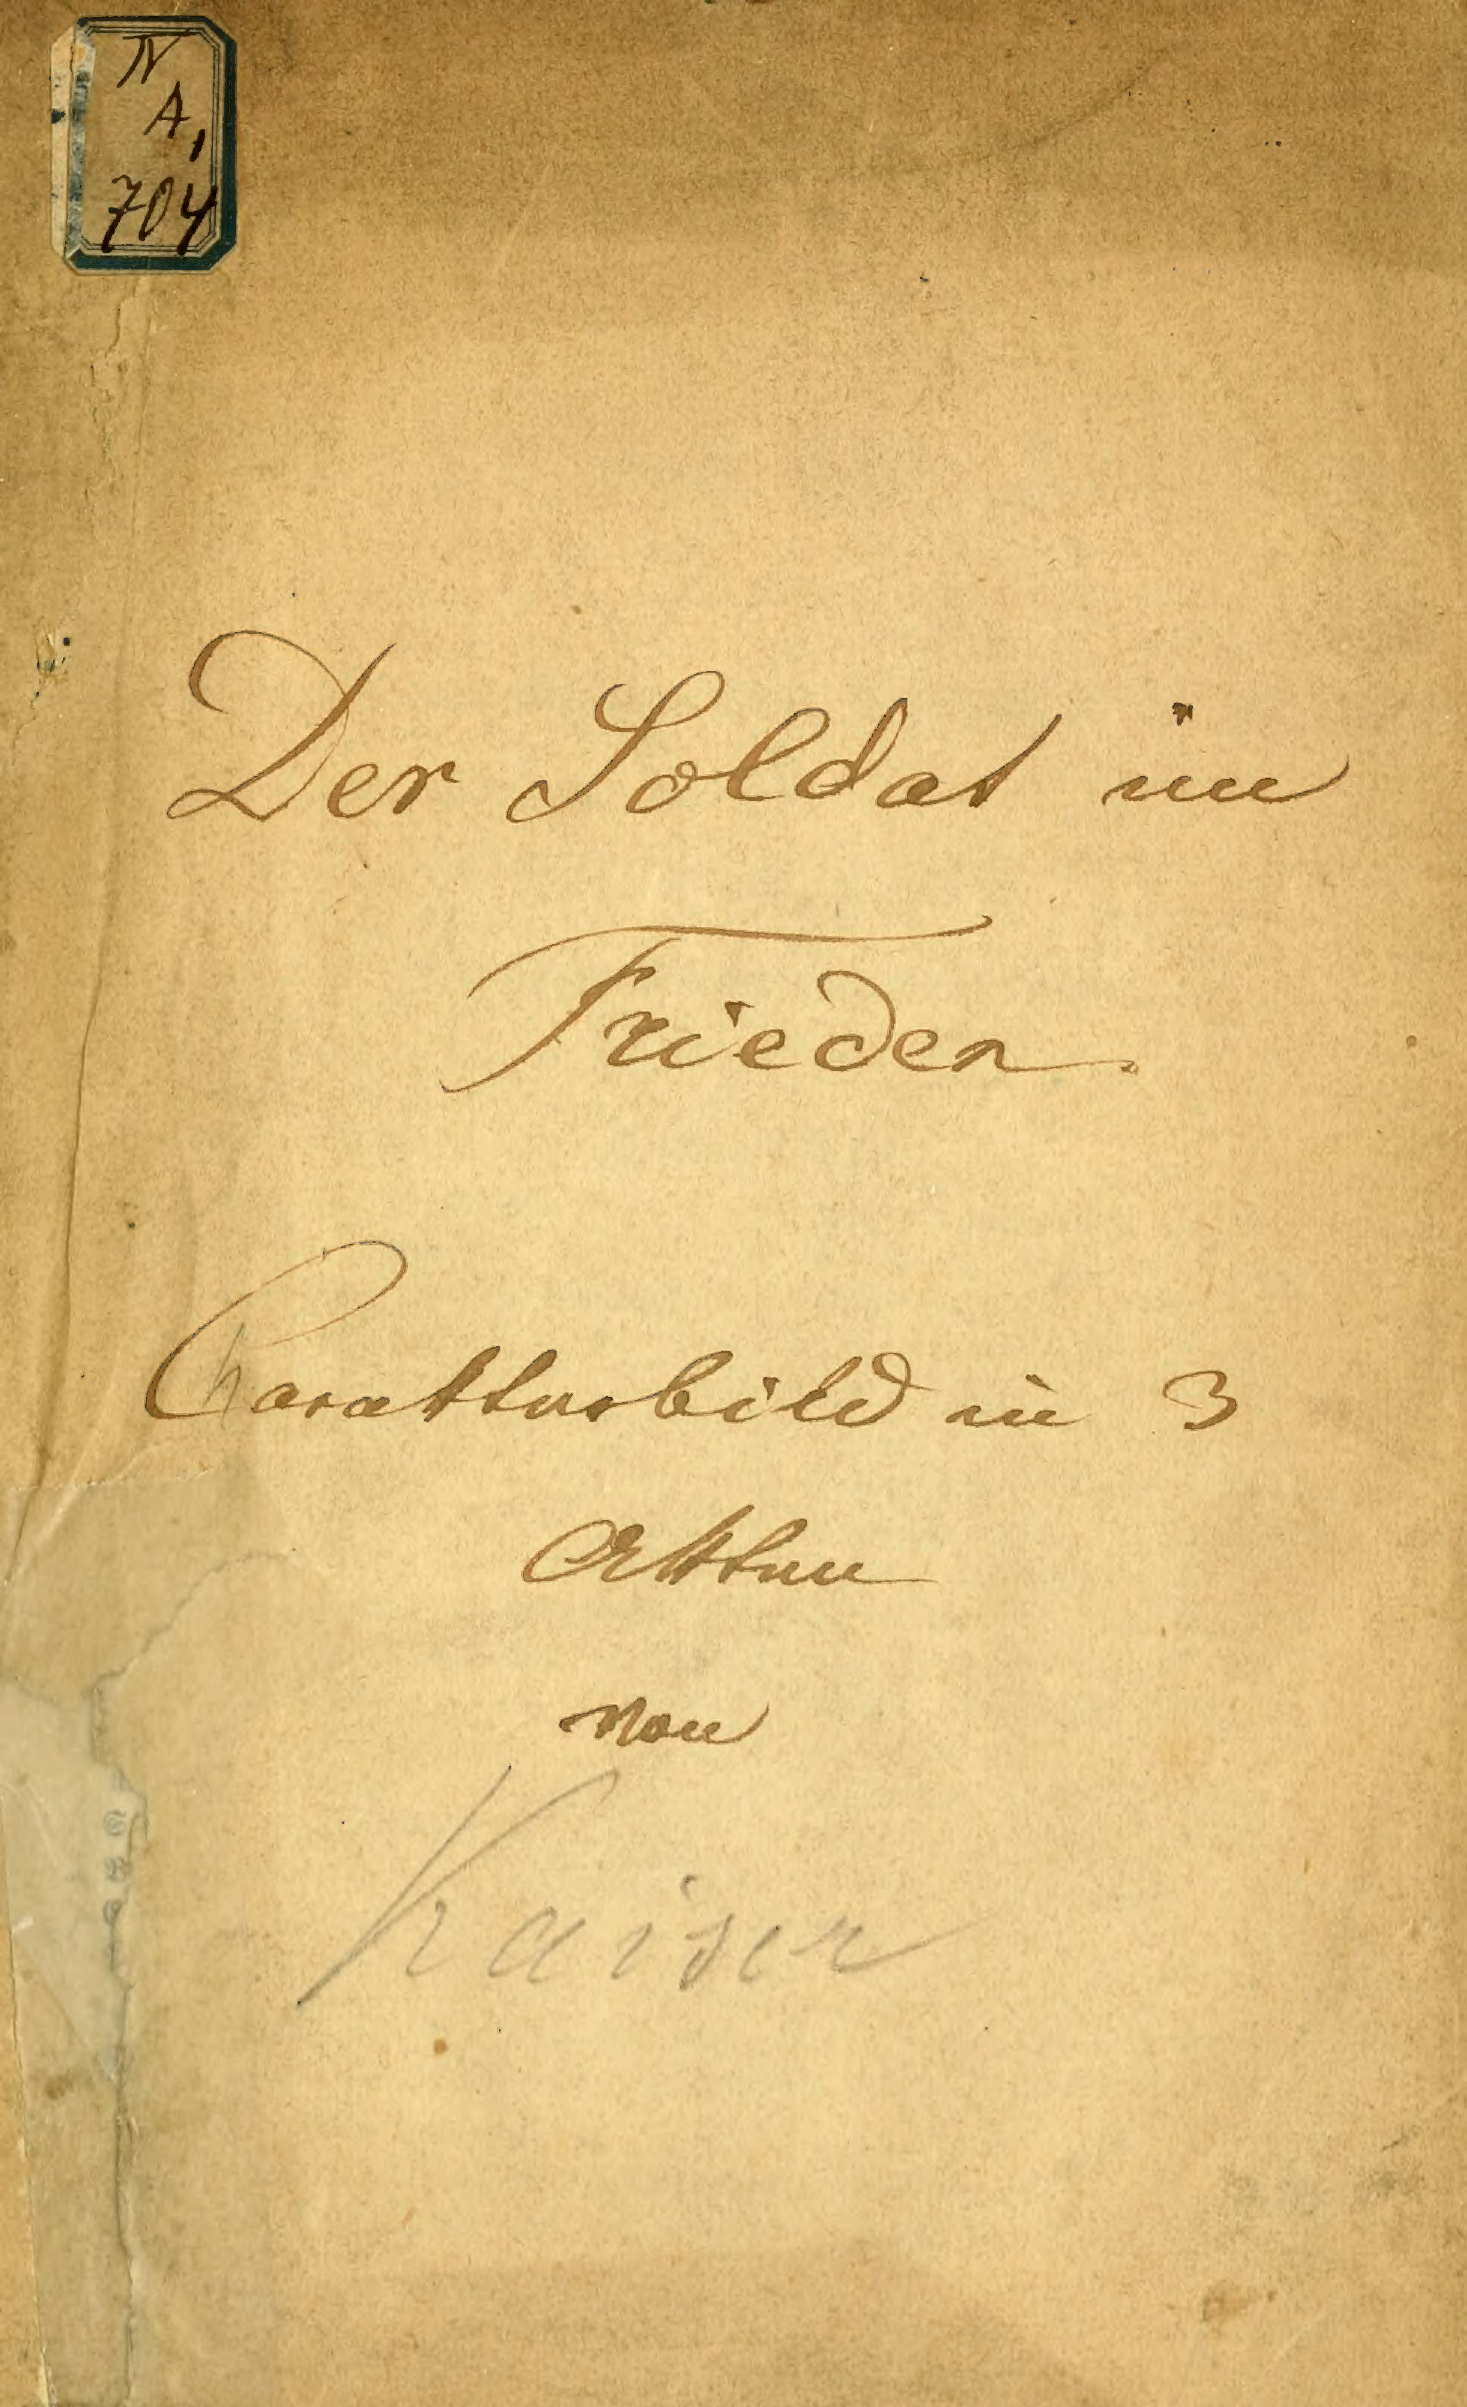 N
A,
704
Der Soldat im
Frieden.
Charakterbild in 3
Akten
von
Kaiser